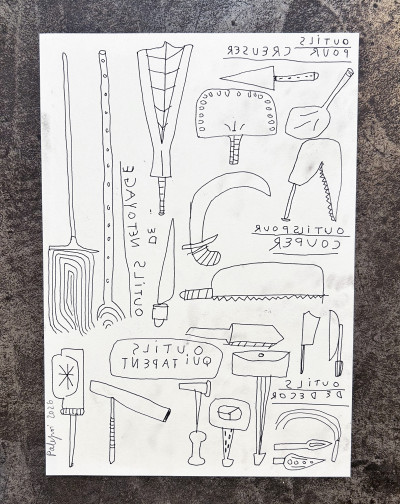 OUTILS
POUR CREUSER
OUTILS DE
NETOYAGE
OUTILS POUR
COUPER
OUTILS
QUI TAPENT
OUTILS
DE DECOR
2026